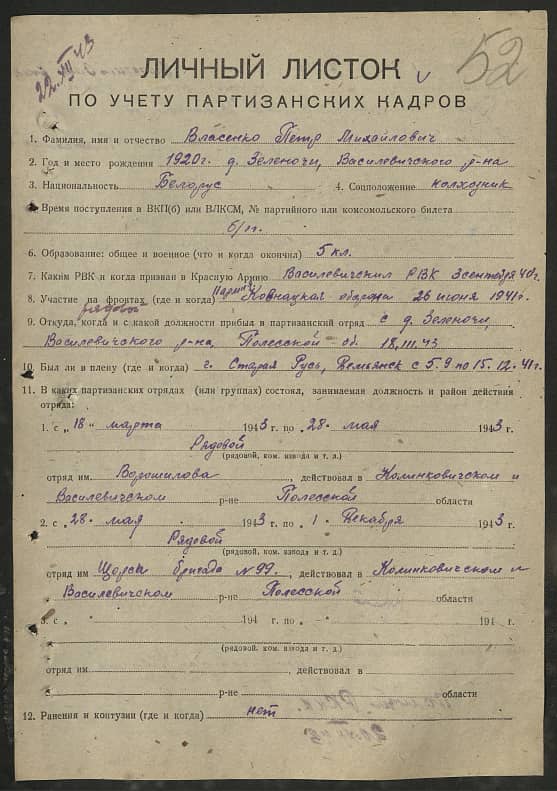 22.XII 43
52
ЛИЧНЫЙ ЛИСТОК
ПО УЧЕТУ ПАРТИЗАНСКИХ КАДРОВ
1. Фамилия, имя и отчество Власенко Петр Михайлович
2. Год и место рождения 1920г. д. Зеленочи, Василевичского р-на
3. Национальность Белорус 4. Соцположение колхозник
5. Время поступления в ВКП(б) или ВЛКСМ, № партийного или комсомольского билета
б/п.
6. Образование: общее и военное (что и когда окончил) 5 кл.
7. Каким РВК и когда призван в Красную Армию Василевичским РВК 3 сентября 40 г.
8. Участие на фронтах (где и когда) оборона 26 июня 1941г.
рядовой
9. Откуда, когда и с какой должности прибыл в партизанский отряд с д. Зеленочи,
Василевичского р-на, Полесской об. 18.III.43
10. Был ли в плену (где и когда) г. Старая Русь, Демьянск с 5.9 по 15.12.41г.
11. В каких партизанских отрядах (или группах) состоял, занимаемая должность и район действия
отряда:
1. с „18" марта 1943 г. по „28" мая 1943 г.
Рядовой
(рядовой, ком. взвода и т. д.)
отряд им. Ворошилова, действовал в Колинковичском и
Василевичском р-не Полесской области
2. с „28" мая 1943 г. по „1" Декабря 1943 г.
Рядовой
(рядовой, ком. взвода и т. д.)
отряд им. Щорса бригада N 99., действовал в Колинковичском и
Василевичском р-не Полесской области
3. с „ " 194 г. по „ " 194 г.
(рядовой, ком. взвода и т. д.)
отряд им. действовал в
р-не области
12. Ранения и контузии (где и когда) нет